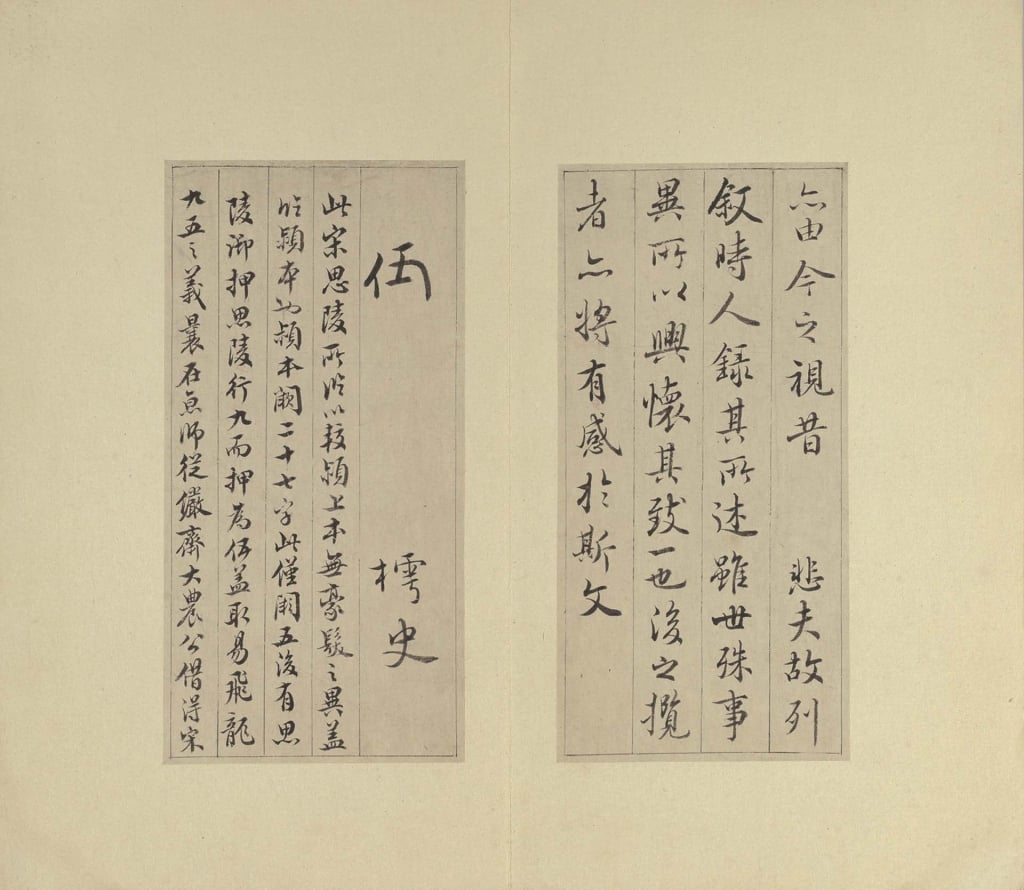 亦由今之視昔　悲夫故列
敘時人錄其所述雖世殊事
異所以興懷其致一也後之攬
者亦將有感於斯文
伍　樗史
此宋思陵所臨以較潁上本無豪髮之異蓋
臨潁本也潁本闕二十七字此僅闕五後有思
陵御押思陵行九而押為伍蓋取易飛龍
九五之義曩在京師從儼齋大農公借得宋